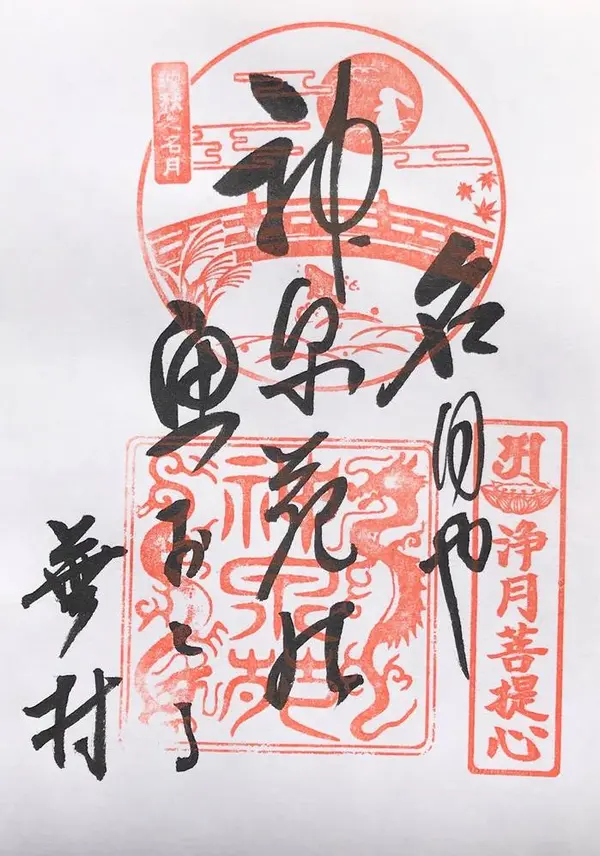 名月や
神泉苑の
魚おどる
蕪村
名月
神泉苑
浄月菩提心